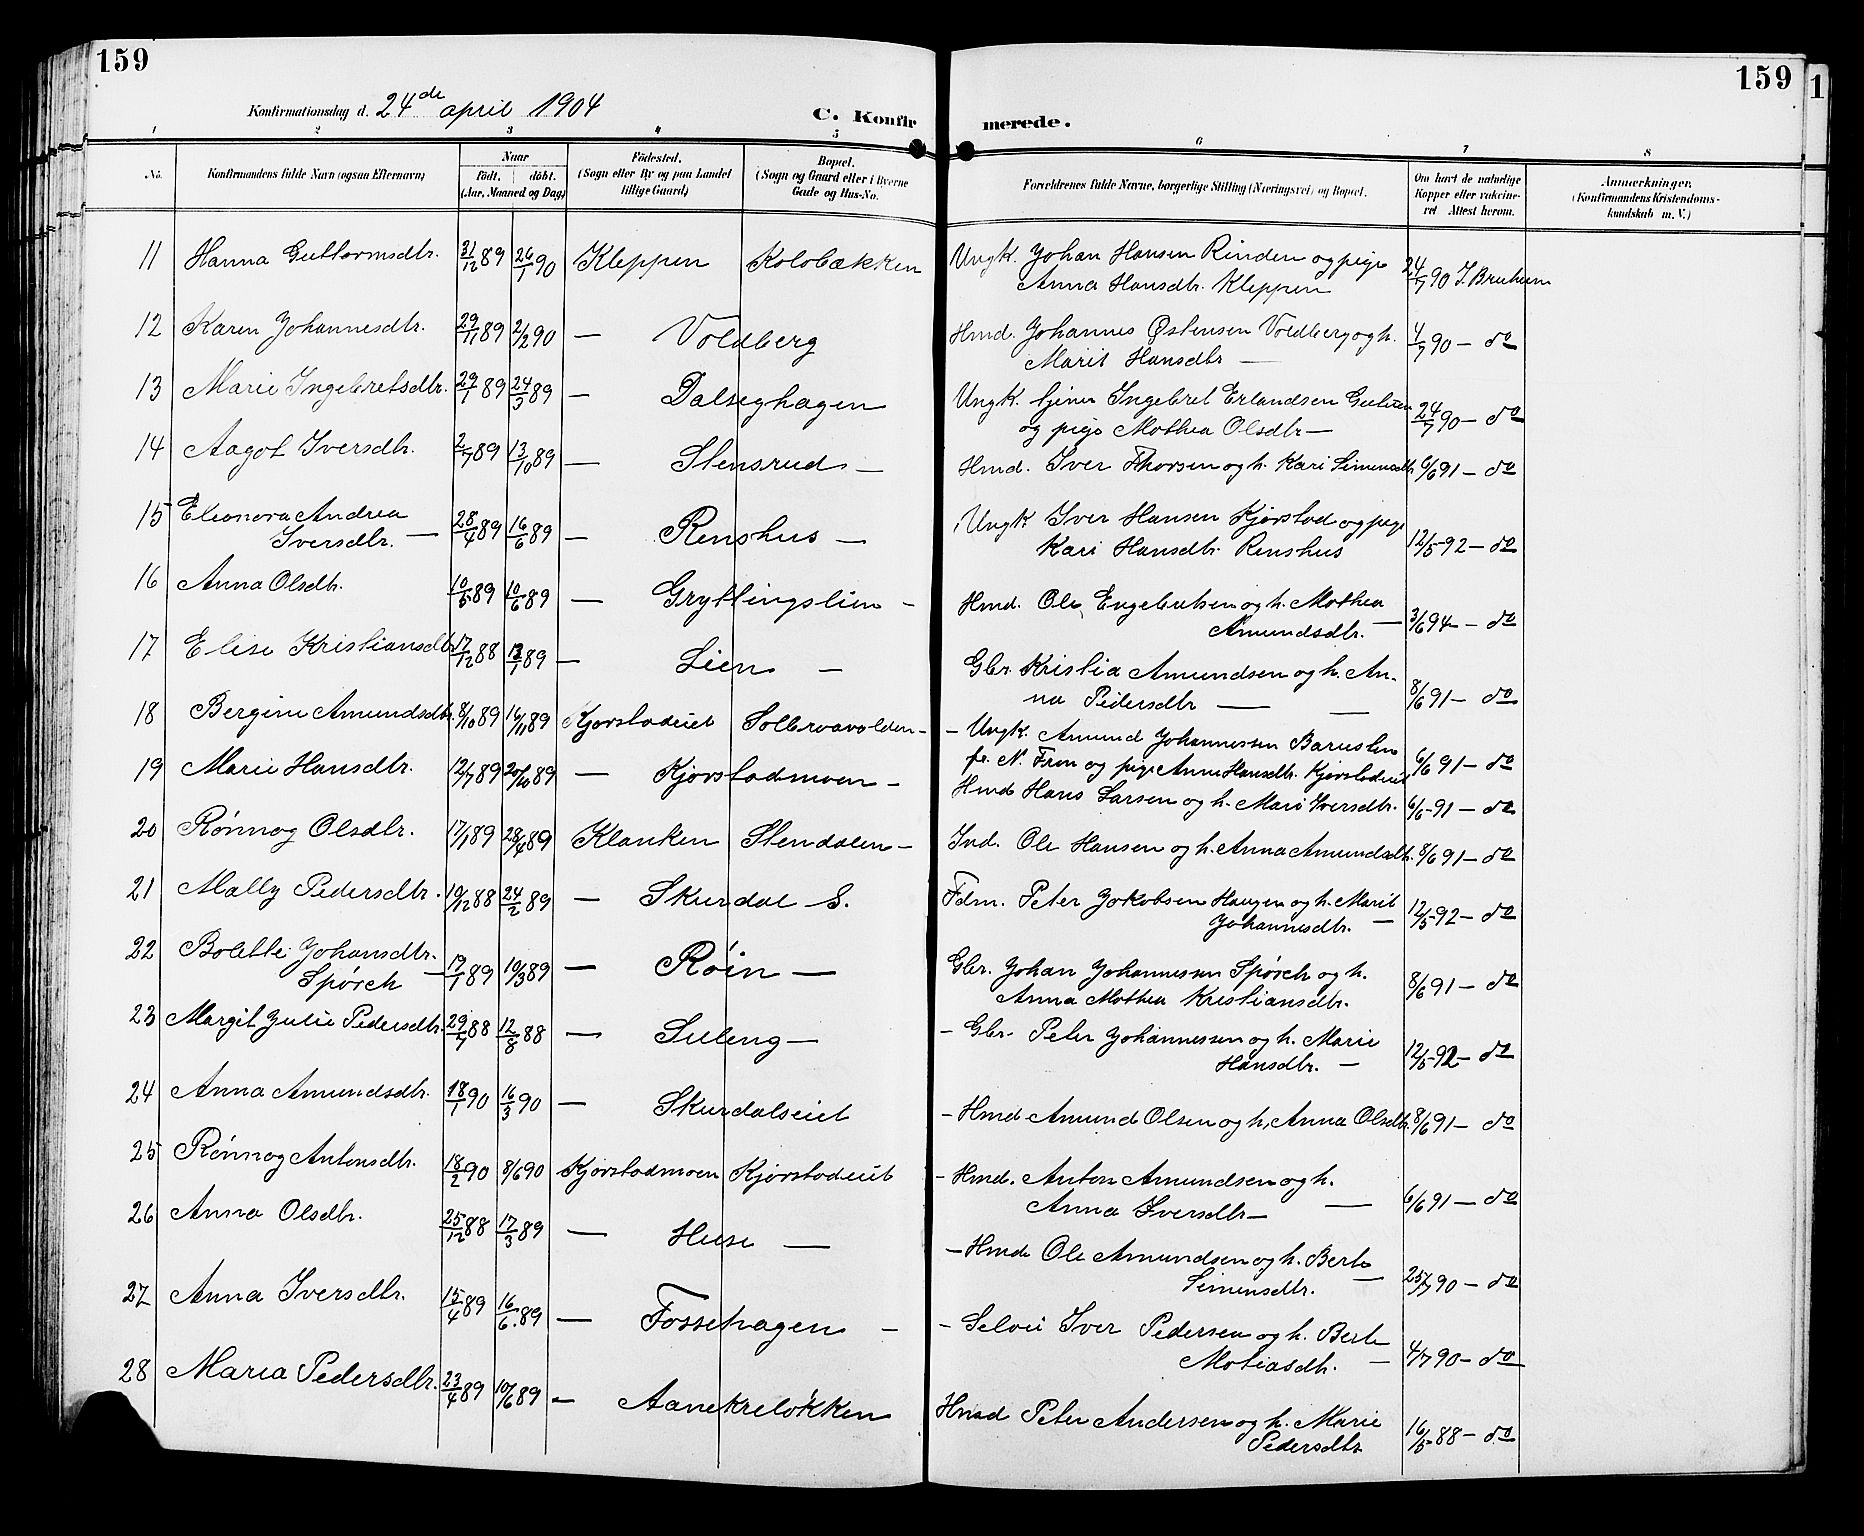 159
159
1
Konfirmationsdag d. 24de april 1904
C. Konfir merede.
1 2 3 4 5 6 7 8
No. Konfirmandens fulde Navn (ogsaa Efternavn) Naar födt. döbt. (Aar, Maaned og Dag) Födested. (Sogn eller By og paa Landet tillige Gaard) Bopæl. (Sogn og Gaard eller i Byerne Gade og Hus-No. Forældrenes fulde Navne, borgerlige Stilling (Næringsvei) og Bopæl. Om havt de naturlige Kopper eller vakcineret Attest herom. Anmærkninger. (Konfirmandens Kristendomskundskab m. V.)
11 Hanna Guttormsdtr. 31/12 89 26/1 90 Kleppen Kolobækken Ungk. Johan Hansen Rinden og pige 24/7 90 J. Bruheim
Anna Hansdtr. Kleppen
12 Karen Johannesdtr. 29/11 89 2/2 90 — Voldberg Hmd. Johannes Østensen Voldberg og h. 4/7 90 — do
Marit Hansdtr —
13 Marie Ingebretsdtr. 29/1 89 24/3 89 — Dalseghagen Ungk. tjener Ingebret Erlandsen 24/7 90 — do
og pige Mathea Olsdtr —
14 Aagot Iversdtr. 2/7 89 13/10 89 — Stensrud — Hmd. Iver Thorsen og h. Kari Simensdtr 6/6 91 — do
15 Eleonora Andrea
Iversdtr. — 28/4 89 16/6 89 — Renshus — Ungk Iver Hansen Kjorstad og pige
Kari Hansdtr. Renshus 12/5 92 — do
16 Anna Olsdtr. 10/5 89 10/6 89 — Gryttingslien — Hmd. Ole Engebretsen og h. Mathea —
Amundsdtr. 3/6 94 — do
17 Elise Kristiansdtr 17/12 88 13/1 89 — Lien — Gbr. Kristia Amundsen og h. An-
na Pedersdtr — — 8/6 91 — do
18 Bergine Amundsdtr. 8/10 89 16/11 89 Kjorstadeiet Solbraavolden — — Ungk. Amund Johannessen
fr. N. Fron og pige Anne Hansdtr. Kjorstadeiet 6/6 91 — do
19 Marie Hansdtr. 12/7 89 20/10 89 — Kjorstadmoen — Hmd Hans Larsen og h. Mari Iversdtr. 6/6 91 — do
20 Rønnog Olsdtr. 17/1 89 28/4 89 Klanken Stendalen — Ind. Ole Hansen og h. Anna Amundsdtr. 8/6 91 — do
21 Mally Pedersdtr. 10/12 88 24/2 89 — Skurdal S. Fdm. Peter Jakobsen Haugen og h. Marit
Johannesdtr. — 12/5 92 — do
22 Bolette Johansdtr.
Spørch — 19/1 89 10/3 89 — Røin — Gbr. Johan Johannessen Spørch og h.
Anna Mathea Kristiansdtr. 8/6 91 — do
23 Margit Julie Pedersdtr. 29/7 88 12/8 88 — Suleng — — Gbr. Peter Johannessen og h. Marie
Hansdtr. — 12/5 92 — do
24 Anna Amundsdtr. 18/1 90 16/3 90 — Skurdalseiet — Hmd Amund Olsen og h. Anna Olsdtr. 8/6 91 — do
25 Rønnog Antonsdtr. 18/2 90 8/6 90 Kjorstadmoen Kjorstadeiet — Hmd. Anton Amundsen og h.
Anna Iversdtr — — 6/6 91 — do
26 Anna Olsdtr. 25/12 88 17/3 89 — Huse — — Hmd. Ole Amundsen og h. Berte
Simensdtr. — 25/7 90 — do
27 Anna Iversdtr. 15/4 89 16/6 89 — Fossehagen — — Selvei Iver Pedersen og h. Berte
Matiasdtr. — 4/7 90 — do
28 Maria Pedersdtr. 23/4 89 10/6 89 — Aanekreløkken Hmd Peter Andersen og h. Marie
Pedersdtr 16/5 88 — do